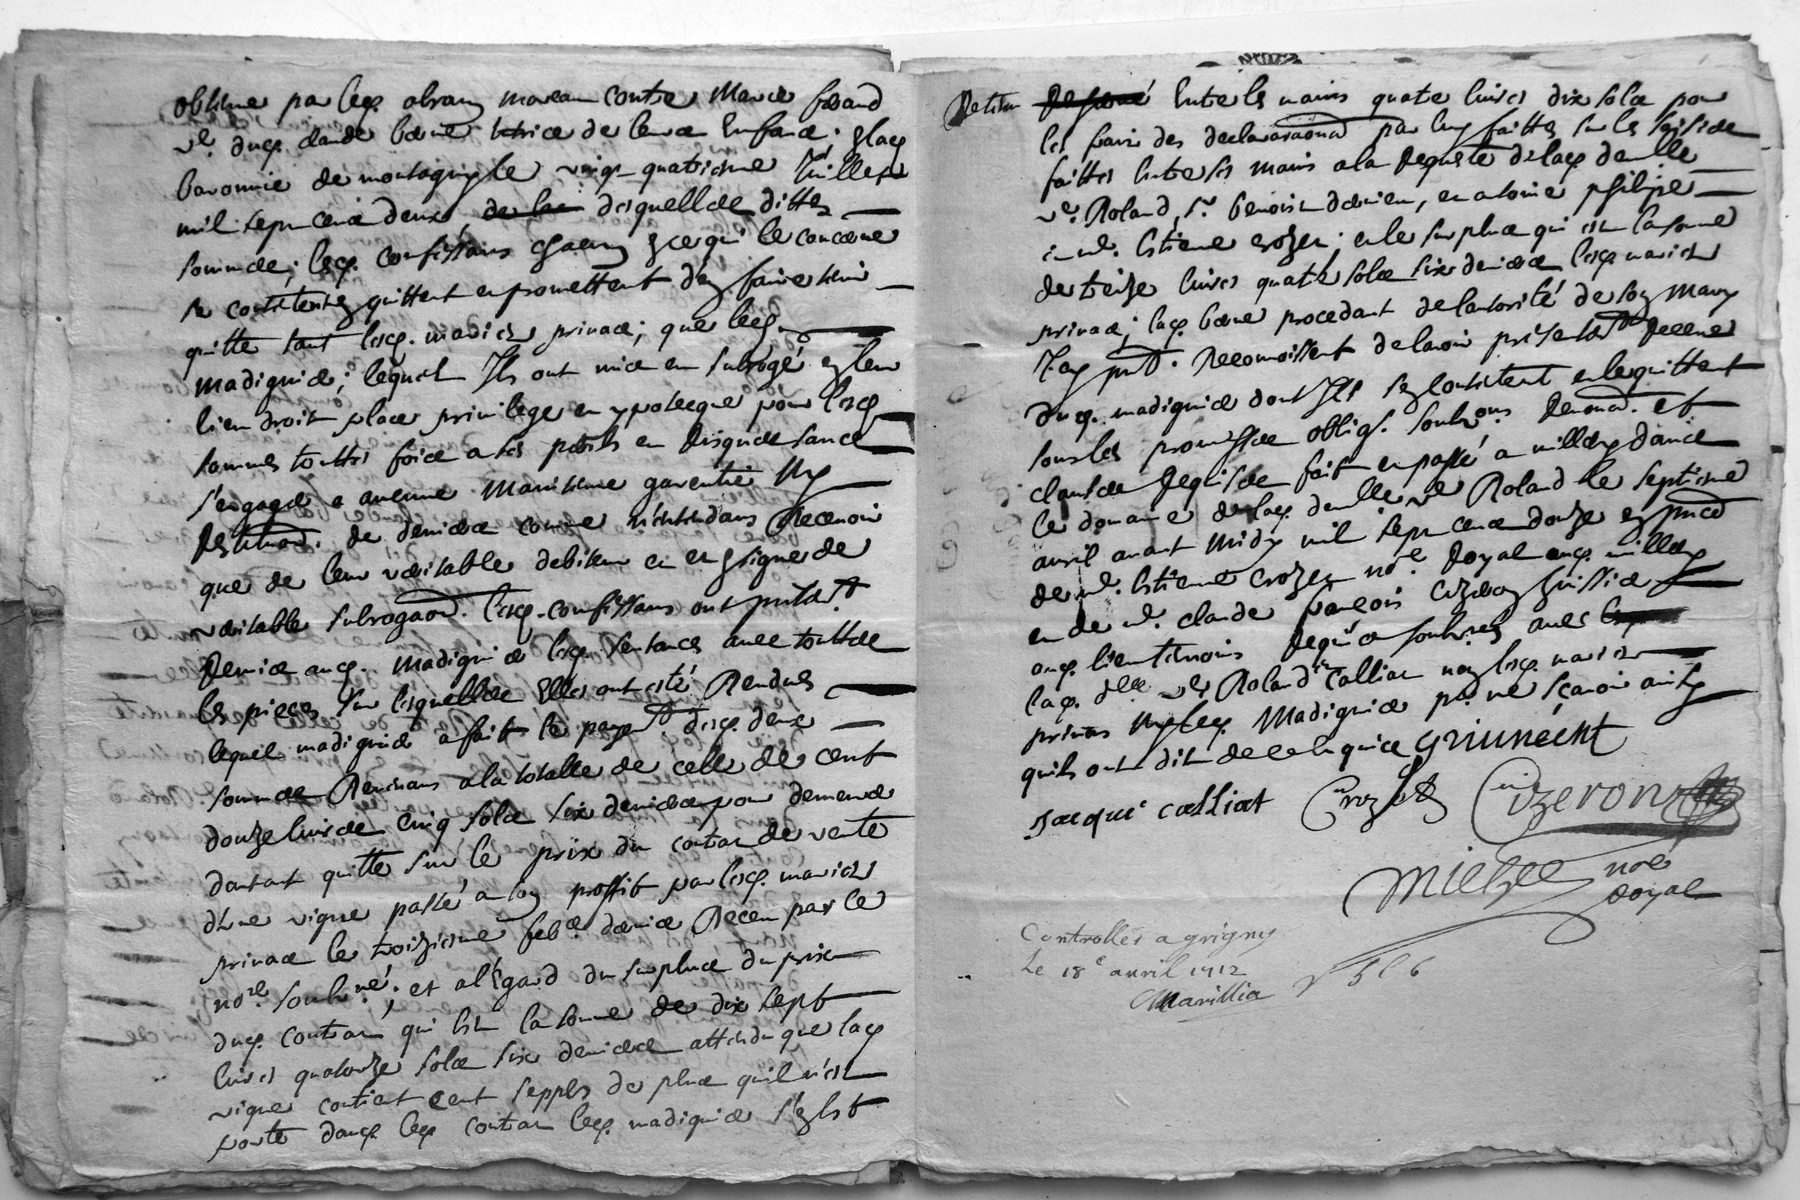 obtenue par led. abram moreau contre Marie
vve. dud. claude berne tutrice de leurs Enfans; En lad.
baronnie de montagny le vingt quatrieme Juillet
mil sept cents deux desquelles dittes
sommes; lesd. confessans chacun En ce qui le concerne
se contentent quittent et promettent d'en faire tenir
quitte tant lesd. mariés privas; que led.
madignier; lequel Ils ont mis et subrogé en leur
lieu droit place privilege et ypoteque pour lesd.
sommes touttes fois a ses perils et risques sans
s'engager a aucune Maintenue garentie Ny
Restitution. de deniers comme n'entendans Recevoir
que de leur veritable debiteur et en signe de
veritable subrogaon. lesd. confessans ont presentemt.
Remis aud. Madignier lesd. sentances avec touttes
les pieces sur lesquelles Elles ont esté Rendues
lequel madignier a fait le payemt. desd. deux
sommes Revenans a la totalle de celle de cent
douze livres cinq sols six deniers pour demeurer
dautant quitte sur le prix du contrat de vente
d'une vigne passé a son proffit par lesd. mariés
privas le troizieme febr. dernier Receu par le
nore. soubsné; et a l'Egard du surplus du prix
dud. contrat qui est la somme de dix sept
livres quatorze sols six deniers attendu que lad.
vigne contient cent seppes de plus quil n'est
porté dans led. contrat led. madignier s'En est
Retenu Entre les mains quatre livres dix sols pour
les frais des declaraons par luy faittes sur les saisies
faittes Entre ses mains a la Requeste de lad. delle
vve. Roland, sr. benoist dernier, et antoine philipe
et me. Estiene crozet; et le surplus qui est la somme
de treize livres quatre sols six deniers lesd. mariés
privas; lad. berne procedant de lautorité de son mary
Reconnoissent de lavoir presentemt. Receue
dud. madignier dont Ils se contentent et le quittent
sous les promesses oblig. soubmons. Renonon. et
clauses Requises fait et passé a millery dans
le domaine de lad. delle vve Roland le septieme
avril avant Midy mil sept cents douze en presce
de me. Estiene crozet nore. Royal aud. millery
et de me. claude françois cizeron huissier
aud. lieu temoins Requis soubsnés avec
lad. delle vve Roland et Calliat non lesd. mariés
privas Ny led. Madignier pr. ne sçavoir ainsy
quils ont dit de ce enquis
Jacque calliat Crozet Cizeron
nore
Royal
Controllés a grigny
Le 18e avril 1712
Marillia